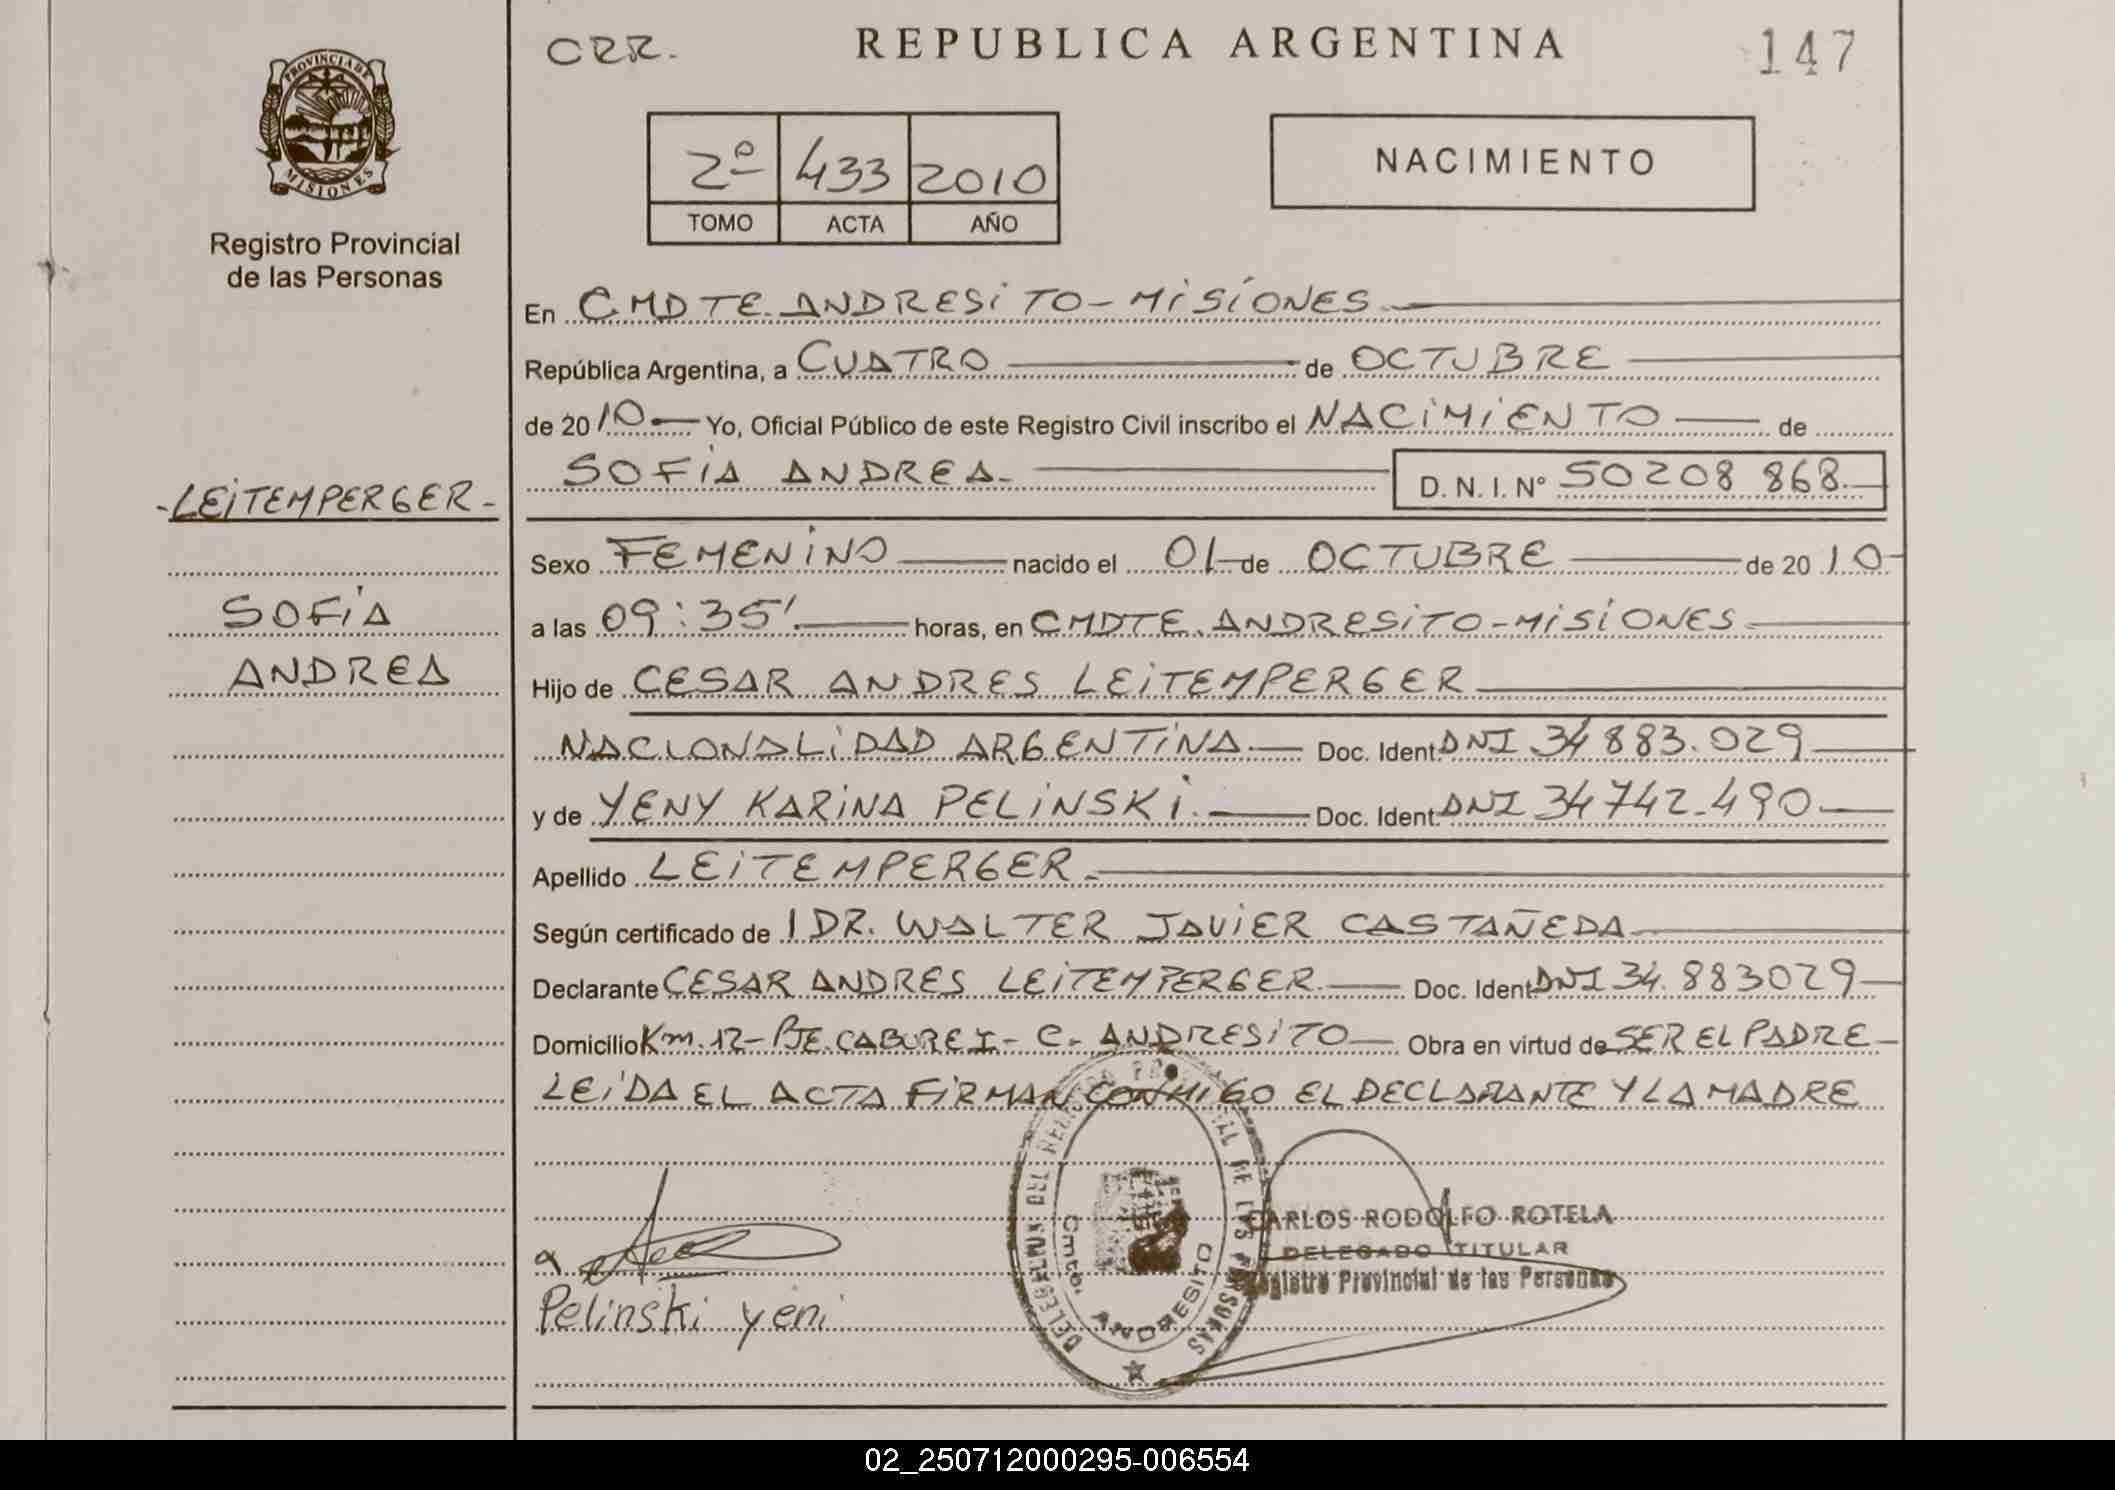 PROVINCIA DE
MISIONES
Registro Provincial
de las Personas
- LEITEMPERGER -
SOFÍA
ANDREA
CRR.
REPUBLICA ARGENTINA
147
2º 433 2010
TOMO ACTA AÑO
NACIMIENTO
En CMDTE. ANDRESITO - MISIONES
República Argentina, a CUATRO de OCTUBRE
de 2010 Yo, Oficial Público de este Registro Civil inscribo el NACIMIENTO de
SOFIA ANDREA. D. N. I. Nº 50208 868.
Sexo FEMENINO nacido el 01 de OCTUBRE de 2010
a las 09:35' horas, en CMDTE. ANDRESITO - MISIONES
Hijo de CESAR ANDRES LEITEMPERGER
NACIONALIDAD ARGENTINA. Doc. Ident. DNI 34 883.029
y de YENY KARINA PELINSKI. Doc. Ident. DNI 34742.490
Apellido LEITEMPERGER.
Según certificado de DR. WALTER JAVIER CASTAÑEDA
Declarante CESAR ANDRES LEITEMPERGER. Doc. Ident. DNI 34.883029
Domicilio Km. 12 - PJE. CABUREI - C. ANDRESITO Obra en virtud de SER EL PADRE
LEIDA EL ACTA FIRMAN CONMIGO EL DECLARANTE Y LA MADRE
CARLOS RODOLFO ROTELA
DELEGADO TITULAR
Registro Provincial de las Personas
Pelinski yeni
DEL REGISTRO PROVINCIAL DE LAS PERSONAS
Cmte. ANDRESITO
02_250712000295-006554